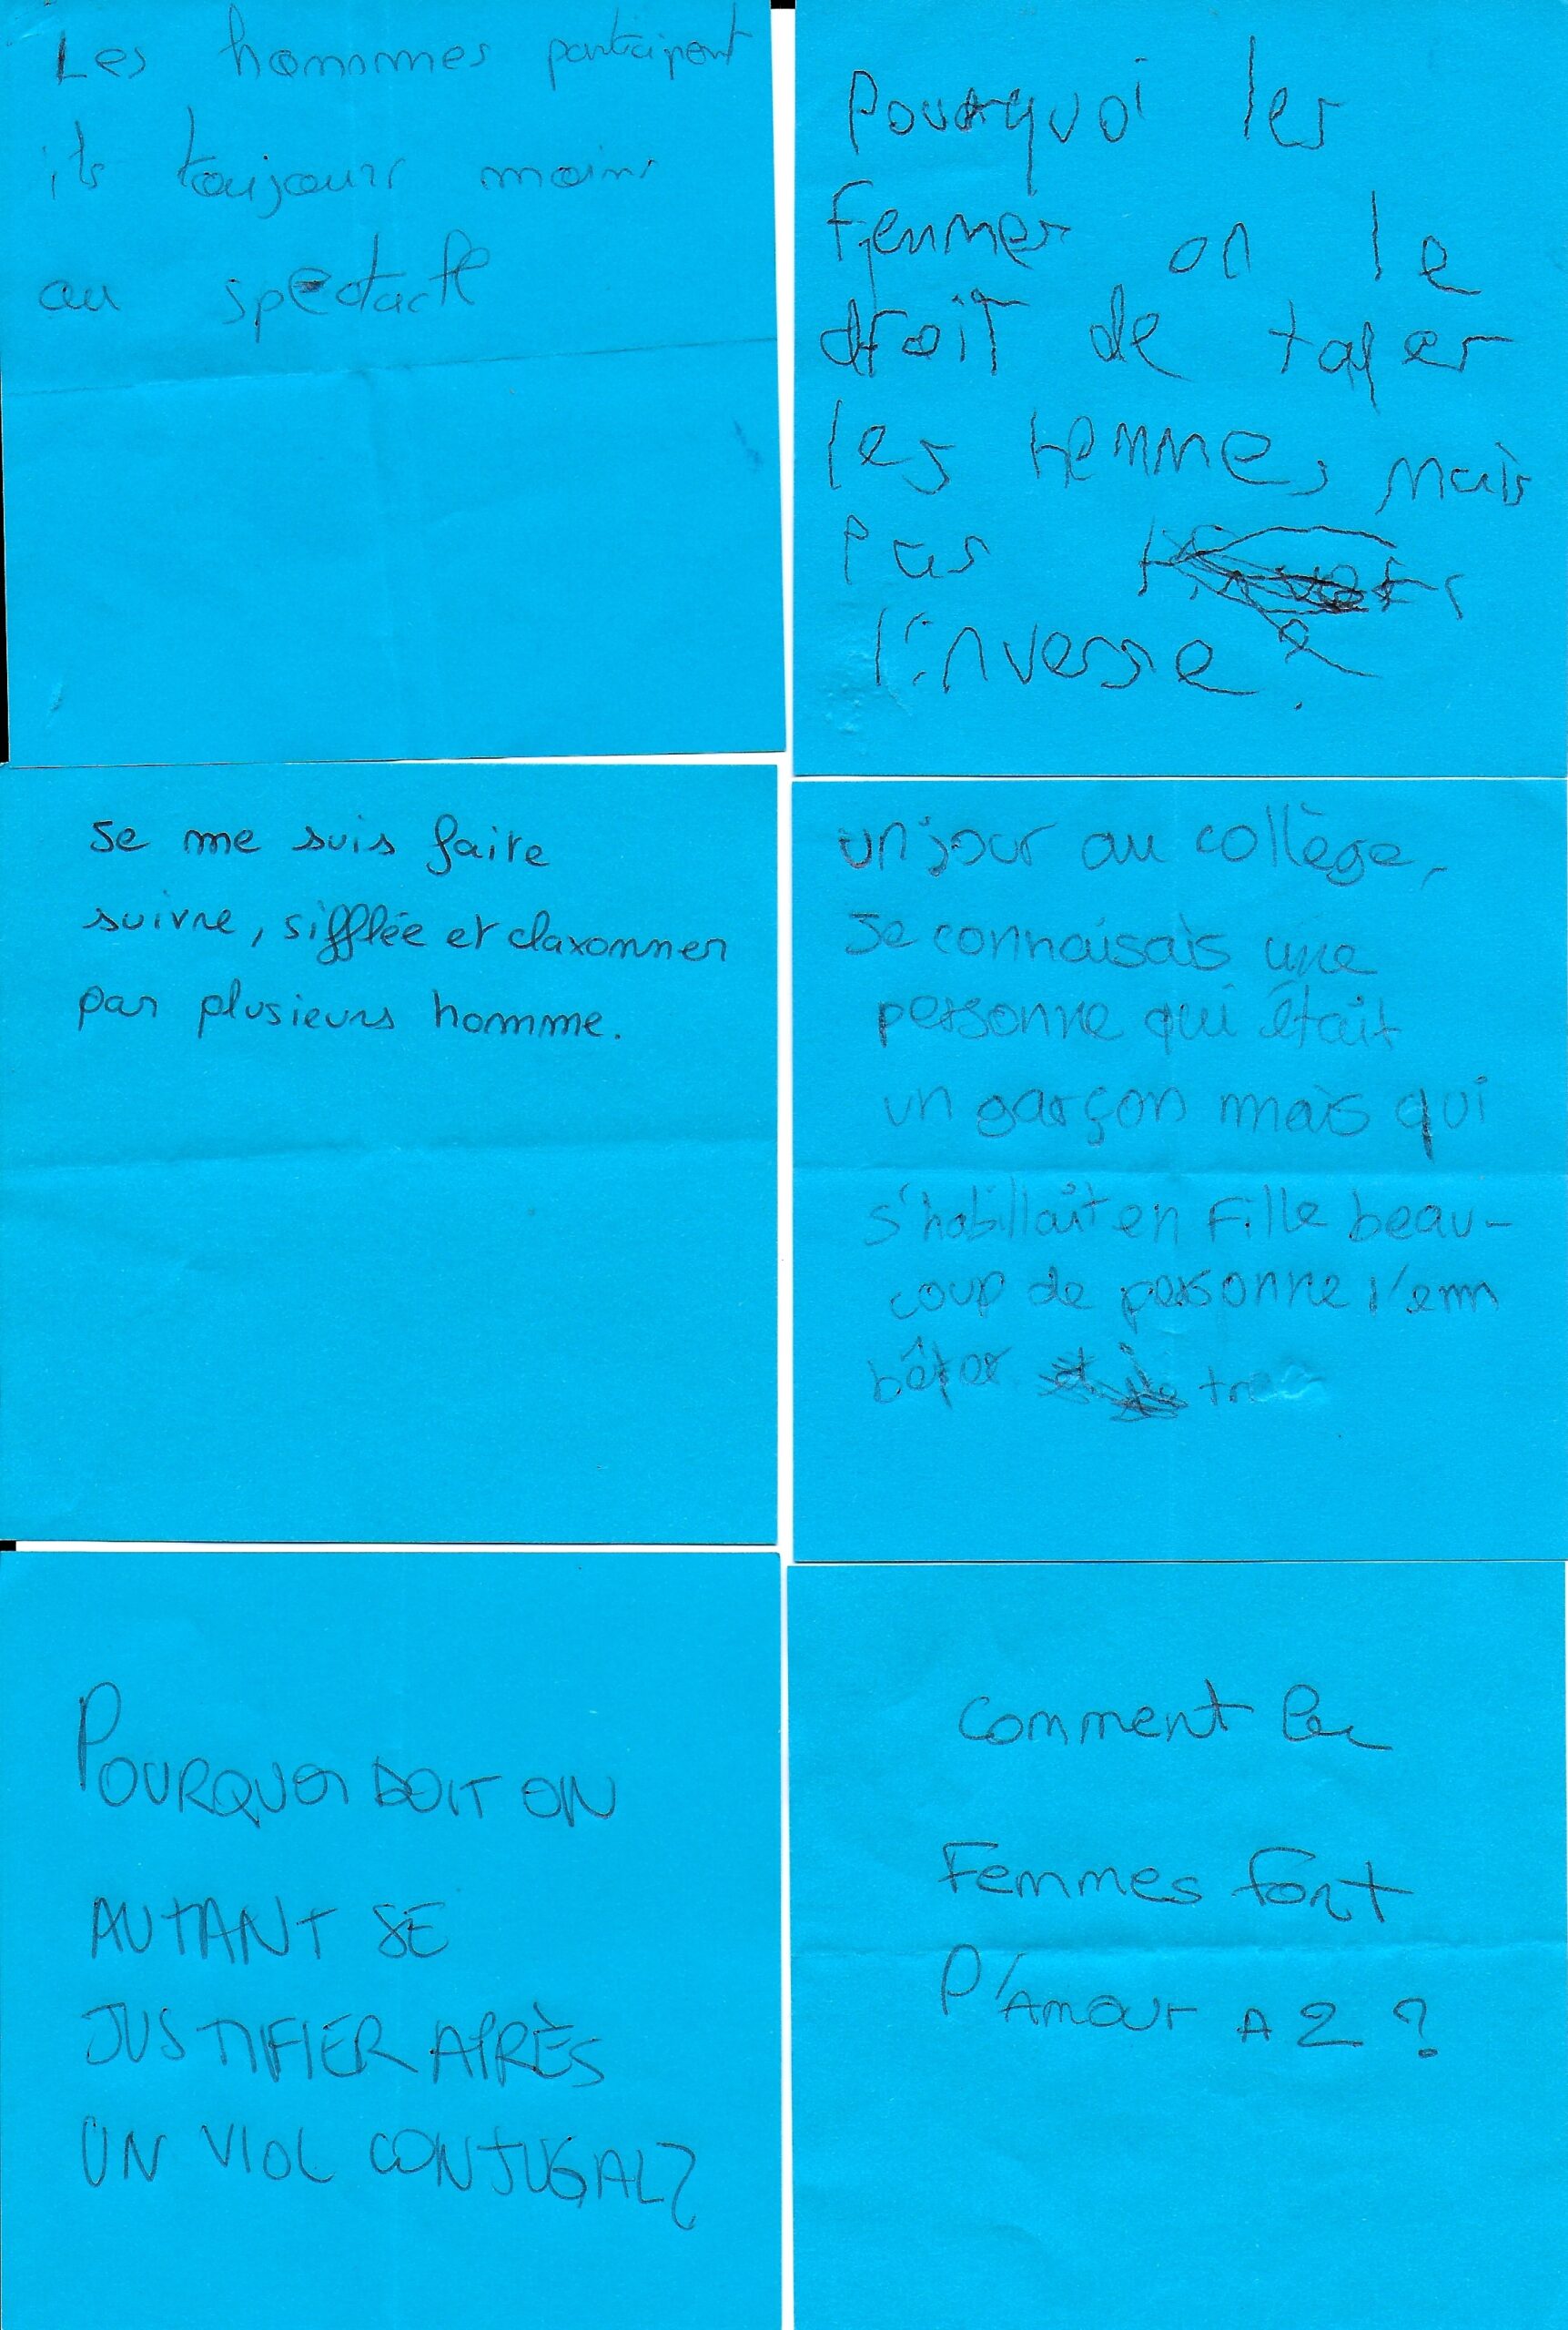 Les hommes participent
ils toujours moins
au spectacle
Pourquoi les
femmes on le
droit de taper
les homme, mais
pas
l'inverse ?
Je me suis faire
suivre, sifflée et claxonner
par plusieurs homme.
un jour au collège,
Je connaisais une
personne qui était
un garçon mais qui
s'habillait en fille beau-
coup de personne l'em
bêter
POURQUOI DOIT ON
AUTANT SE
JUSTIFIER APRÈS
UN VIOL CONJUGAL?
Comment les
Femmes font
l'Amour A 2 ?